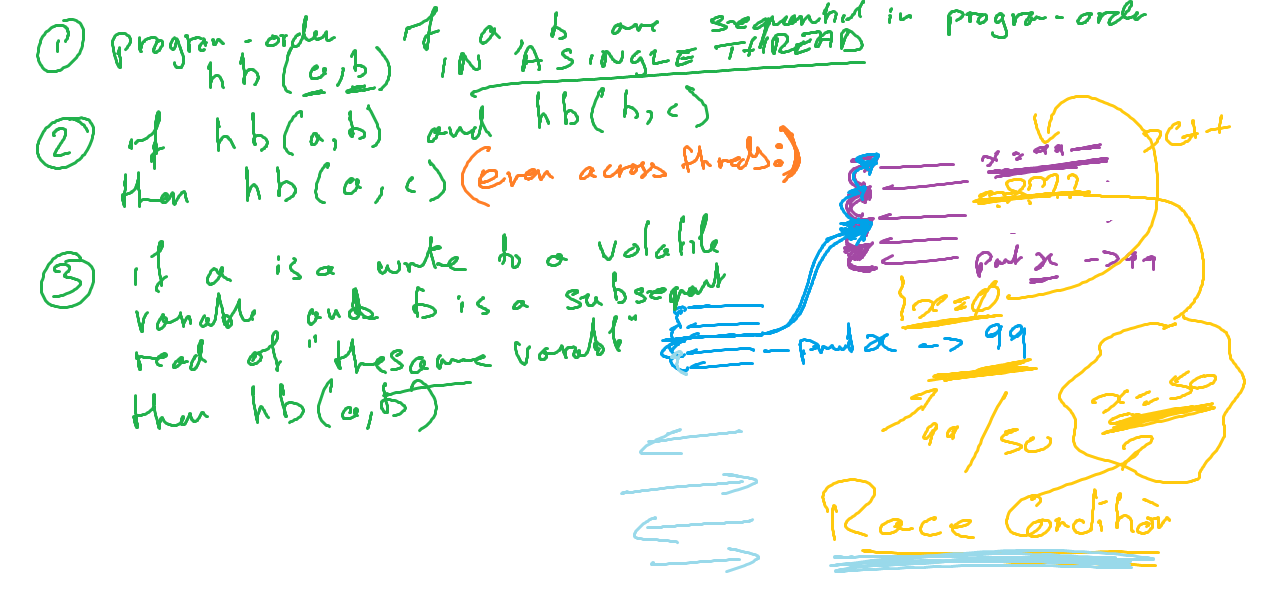 ① program-order if a, b are sequential in program-order
hb(a,b) IN A SINGLE THREAD
② if hb(a,b) and hb(b,c)
then hb(a,c) (even across threds:)
③ if a is a write to a volatile
variable and b is a subsequent
read of "the same variable"
then hb(a,b)
C++
x = 99
print x -> 99
x = 0
print x -> 99
x = 50
99 / 50
Race Condition